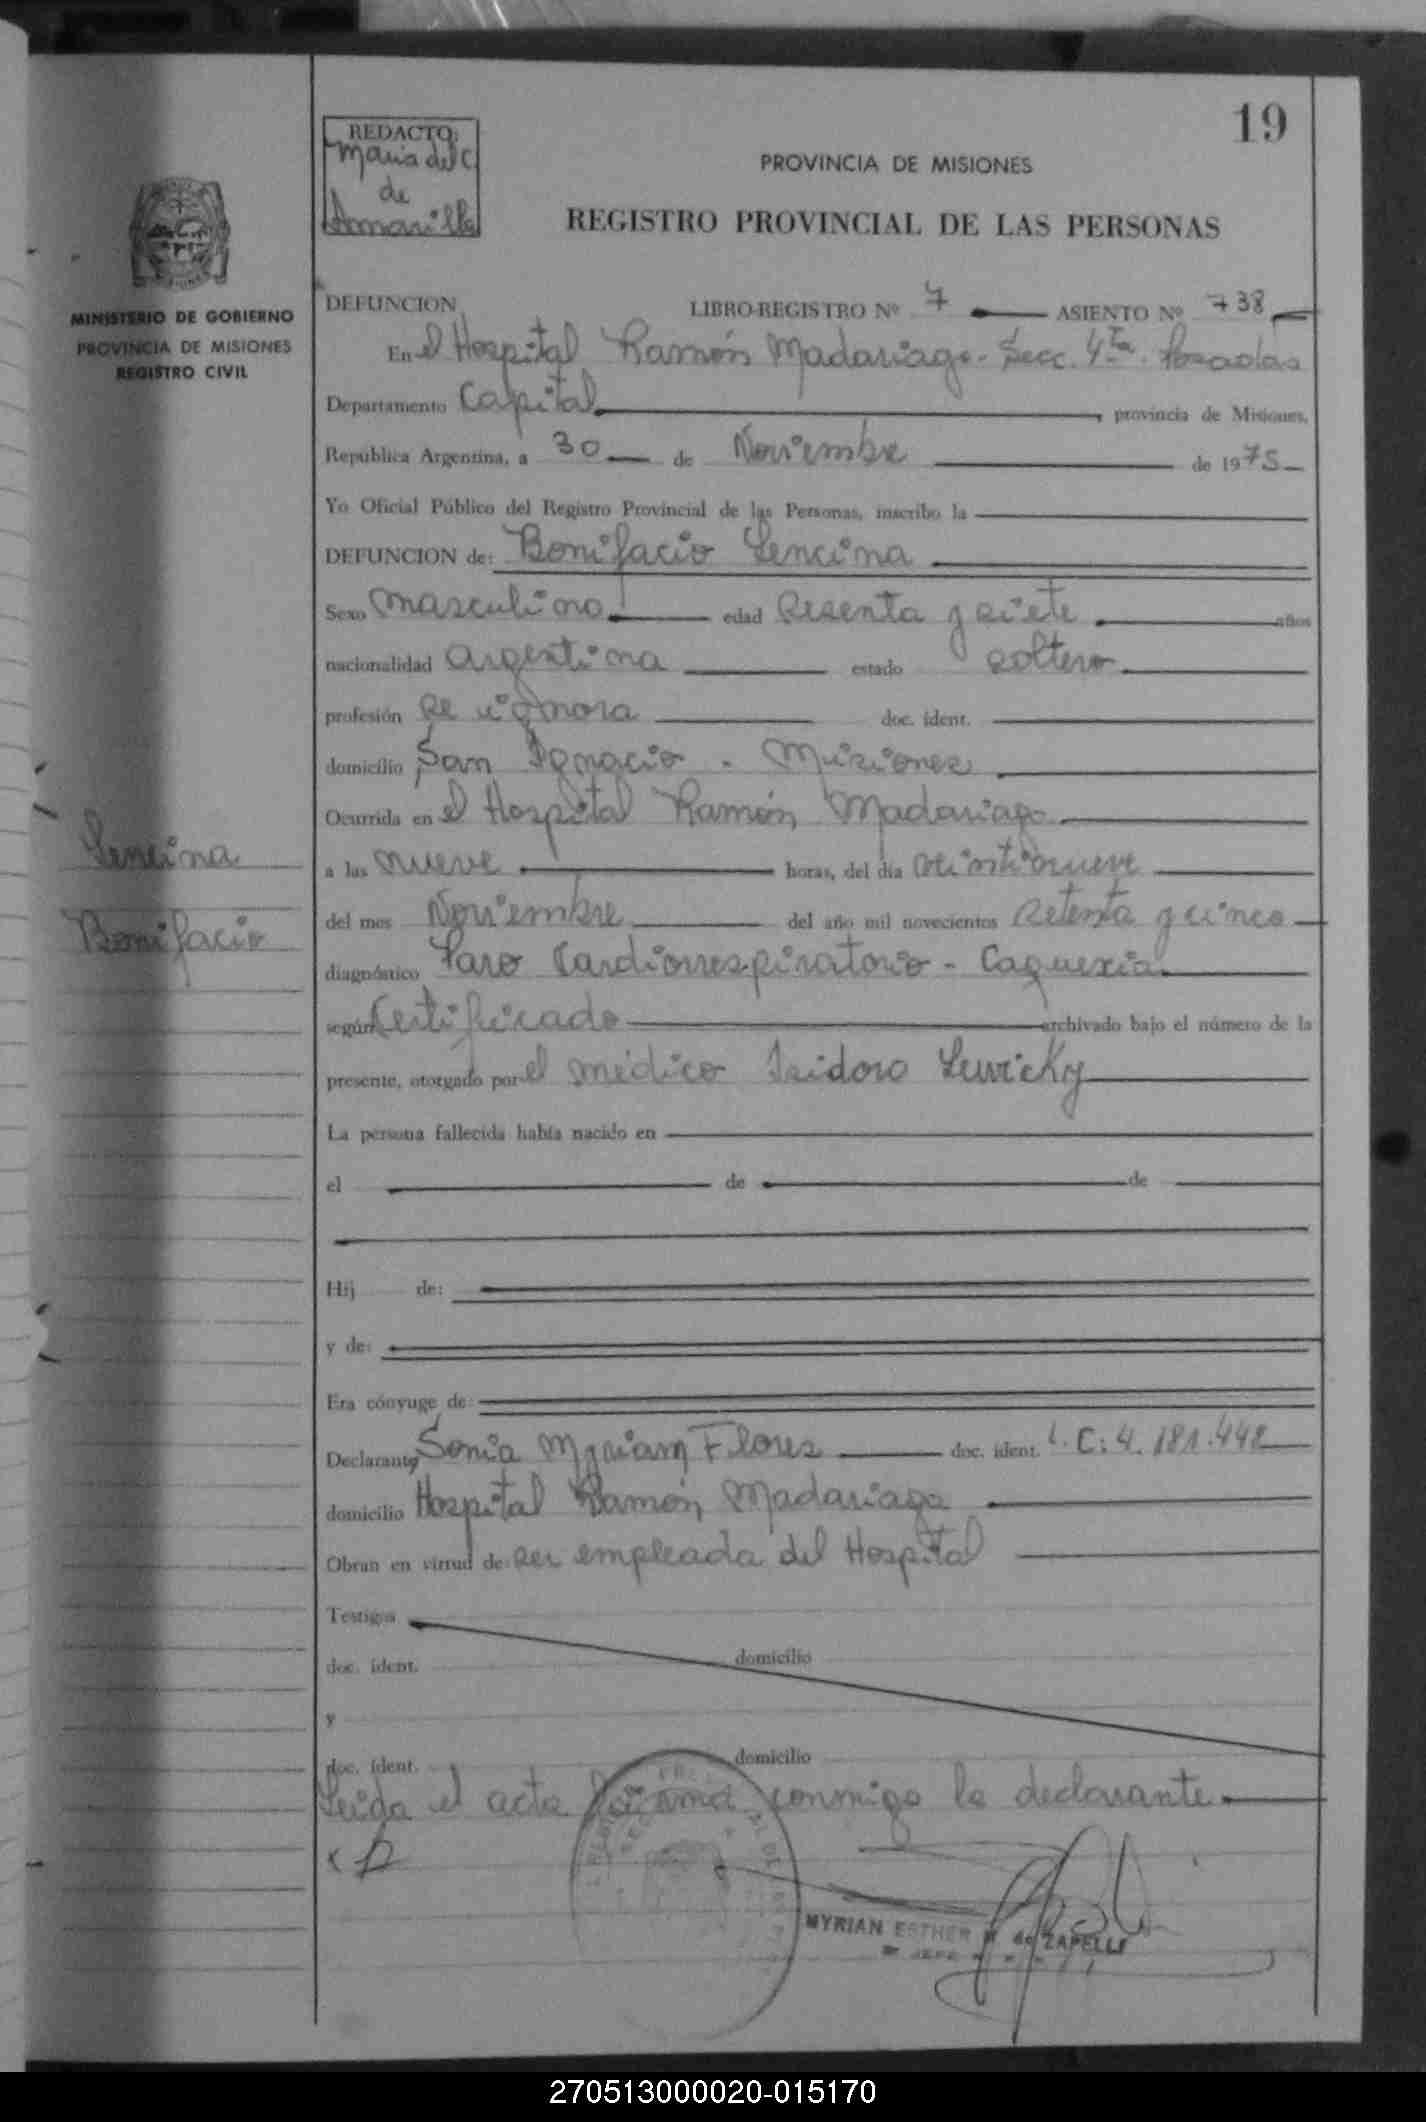 19
REDACTO:
Maria del C.
de
Amarilla
PROVINCIA DE MISIONES
REGISTRO PROVINCIAL DE LAS PERSONAS
MINISTERIO DE GOBIERNO
PROVINCIA DE MISIONES
REGISTRO CIVIL
DEFUNCION LIBRO-REGISTRO Nº 7 ASIENTO Nº 738
En el Hospital Ramón Madariaga - Secc. 4ta. Posadas
Departamento Capital, provincia de Misiones,
República Argentina, a 30 de Noviembre de 1975
Yo Oficial Público del Registro Provincial de las Personas, inscribo la
DEFUNCION de: Bonifacio Lencina
Sexo masculino edad sesenta y siete años
nacionalidad argentina estado soltero
profesión se ignora doc. ident.
domicilio San Ignacio - Misiones
Ocurrida en el Hospital Ramón Madariaga
Lencina
a las nueve horas, del día veintinueve
Bonifacio
del mes Noviembre del año mil novecientos setenta y cinco
diagnóstico Paro Cardiorrespiratorio - Caquexia
según Certificado archivado bajo el número de la
presente, otorgado por el médico Isidoro Lewicky
La persona fallecida había nacido en
el de de
Hij de:
y de:
Era cónyuge de:
Declarante Sonia Myriam Flores doc. ident. L.C: 4.181.442
domicilio Hospital Ramón Madariaga
Obran en virtud de: ser empleada del Hospital
Testigos
doc. ident. domicilio
y
doc. ident. domicilio
Leída el acta la firma conmigo la declarante
MYRIAN ESTHER de ZAPELLI
JEFE
270513000020-015170